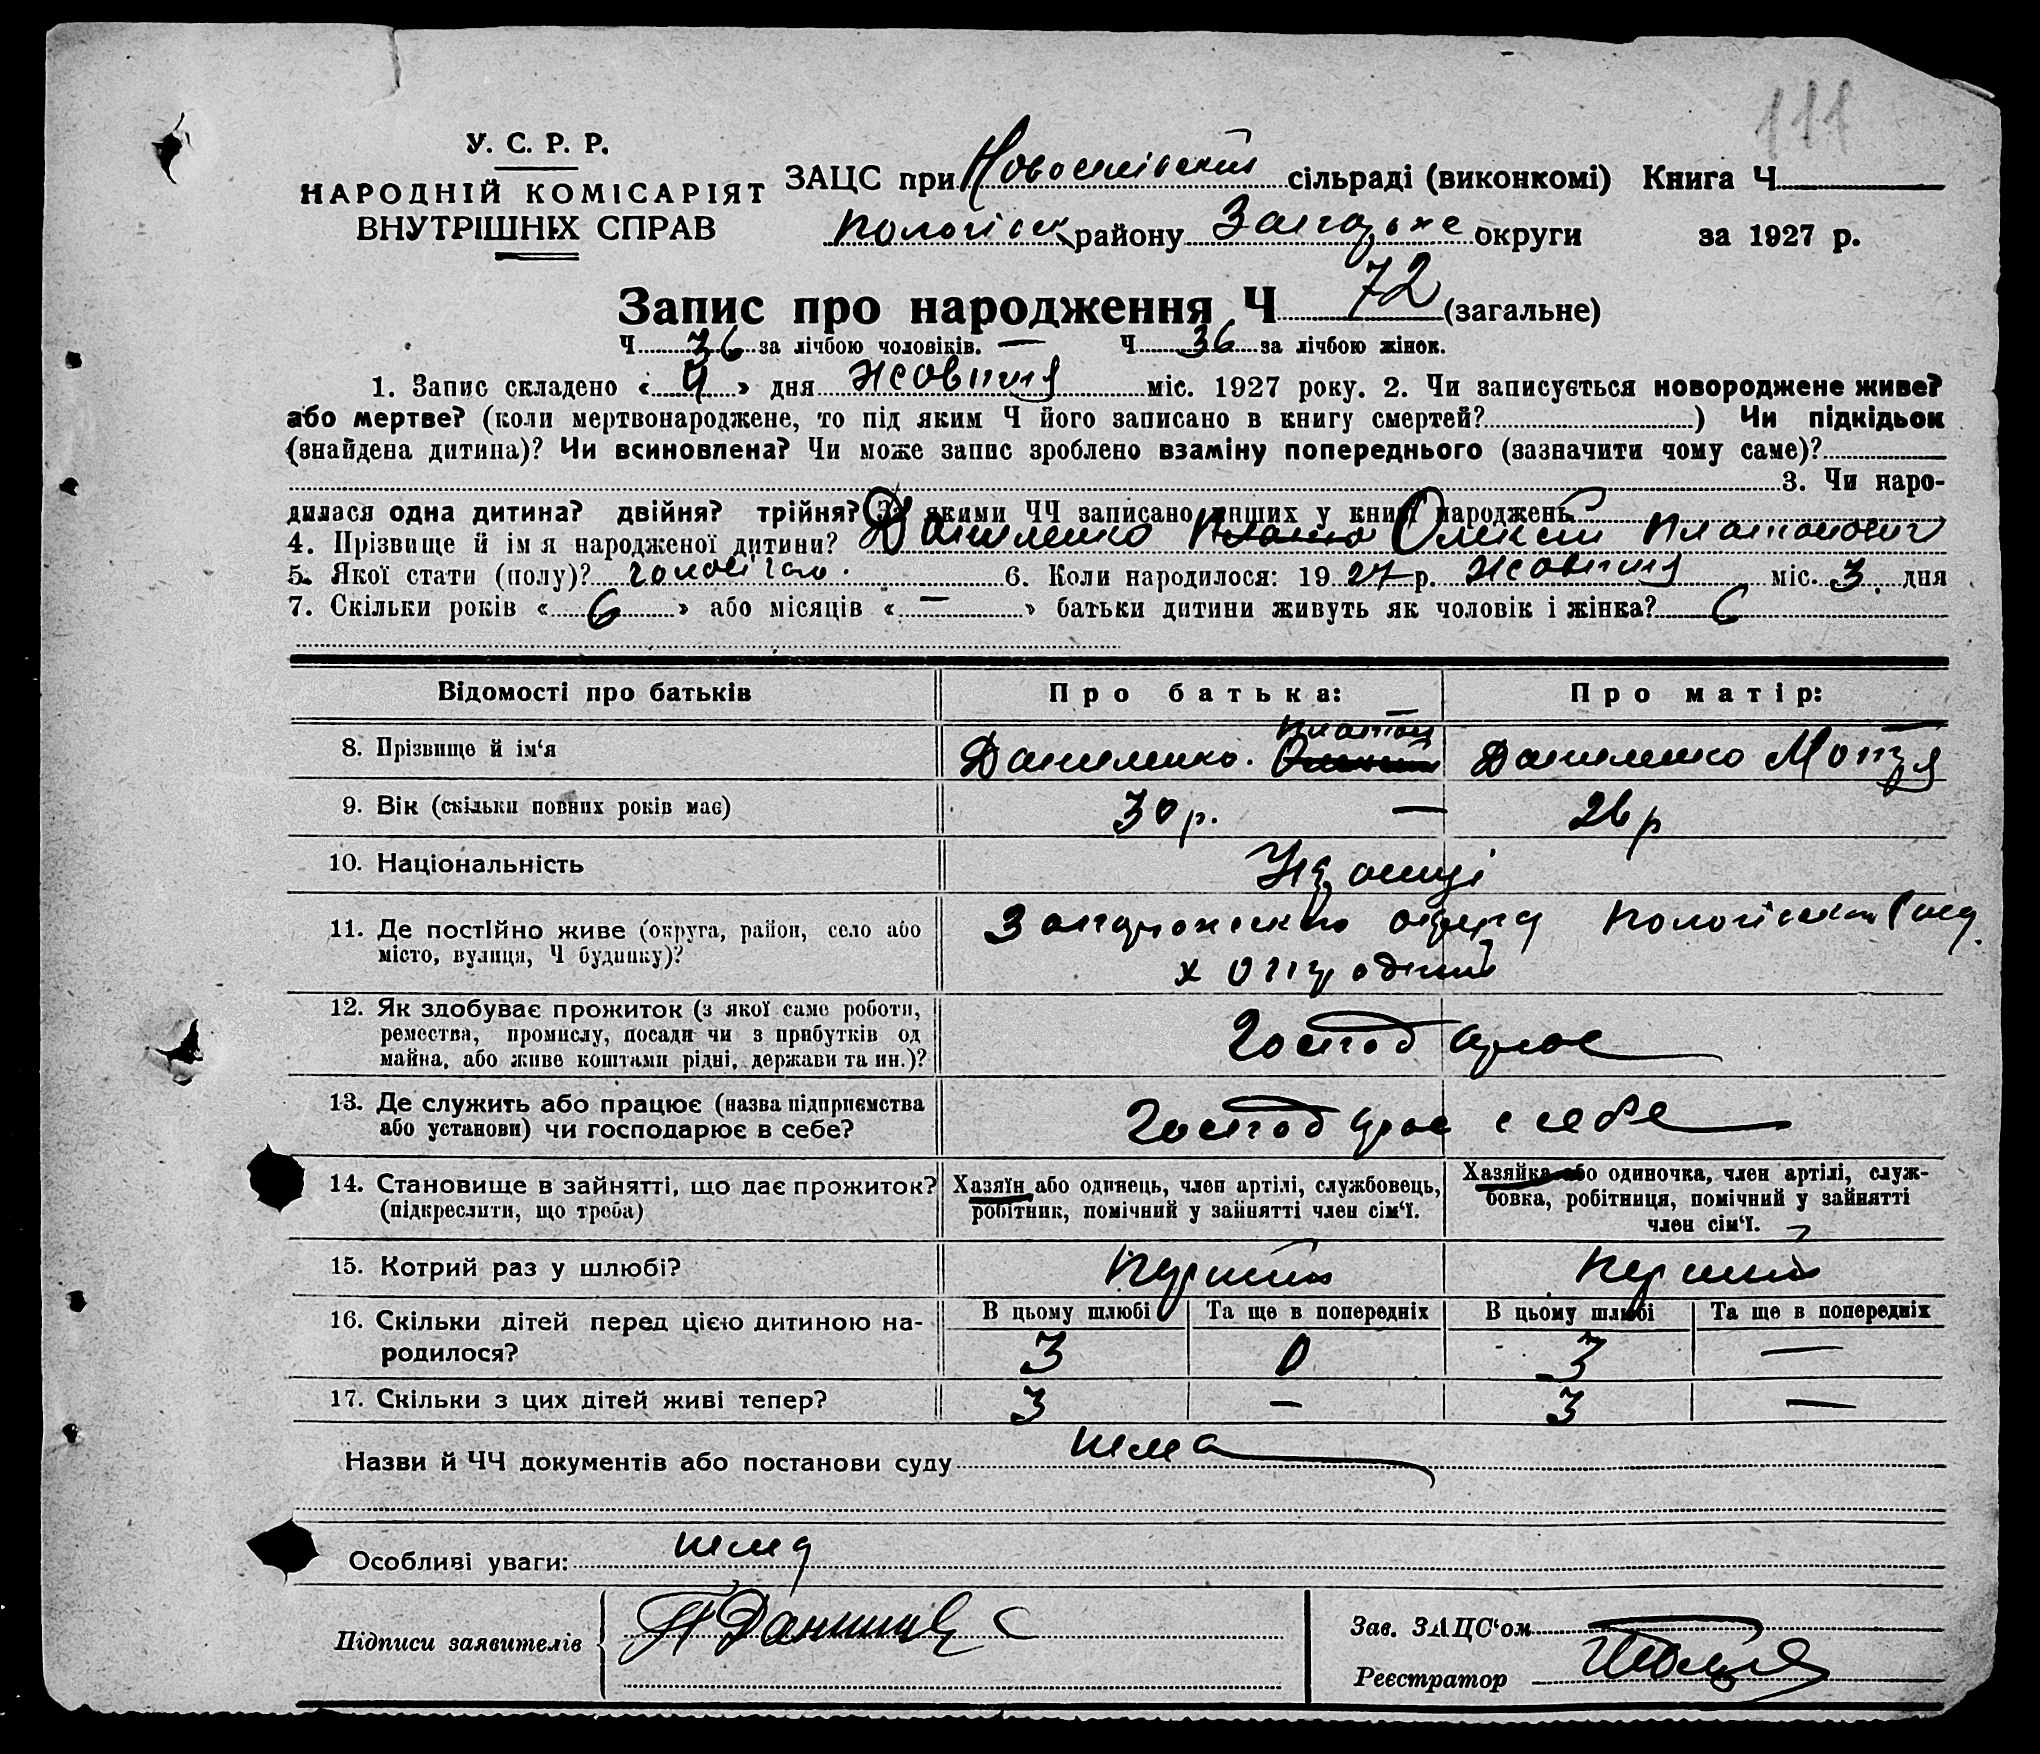 111
У. С. Р. Р.
НАРОДНІЙ КОМІСАРІЯТ
ВНУТРІШНІХ СПРАВ
ЗАЦС при сільраді (виконкомі) Книга Ч
району округи за 1927 р.
Запис про народження Ч 72 (загальне)
Ч 36 за лічбою чоловіків. — Ч 36 за лічбою жінок.
1. Запис складено « 4 » дня жовтня міс. 1927 року. 2. Чи записується новороджене живе?
або мертве? (коли мертвонароджене, то під яким Ч його записано в книгу смертей? ) Чи підкідьок
(знайдена дитина)? Чи всиновлена? Чи може запис зроблено взаміну попереднього (зазначити чому саме)?
3. Чи наро-
дилася одна дитина? двійня? трійня? За якими ЧЧ записано инших у книгі народжень
4. Прізвище й ім я народженої дитини? Даниленко Олексій Платонович
5. Якої стати (полу)? 6. Коли народилося: 1927 р. жовтня міс. 3 дня
7. Скільки років « 6 » або місяців « — » батьки дитини живуть як чоловік і жінка? 6
Відомості про батьків Про батька: Про матір:
8. Прізвище й ім‘я Даниленко Платон Даниленко Мотря
9. Вік (скільки повних років має) 30 р. — 26 р
10. Національність Українці
11. Де постійно живе (округа, район, село або
місто, вулиця, Ч будинку)?
12. Як здобуває прожиток (з якої саме роботи,
ремества, промислу, посади чи з прибутків од
майна, або живе коштами рідні, держави та ин.)?
13. Де служить або працює (назва підприємства
або установи) чи господарює в себе?
14. Становище в зайнятті, що дає прожиток?
(підкреслити, що треба)
Хазяїн або одинець, член артілі, службовець,
робітник, помічний у зайнятті член сім‘ї.
Хазяйка або одиночка, член артілі, служ-
бовка, робітниця, помічний у зайнятті
член сім‘ї.
15. Котрий раз у шлюбі? Перший Перший
16. Скільки дітей перед цією дитиною на-
родилося?
В цьому шлюбі Та ще в попередніх В цьому шлюбі Та ще в попередніх
3 0 3 —
17. Скільки з цих дітей живі тепер? 3 — 3 —
Назви й ЧЧ документів або постанови суду нема
Особливі уваги: нема
Підписи заявителів
Зав. ЗАЦС‘ом
Реєстратор